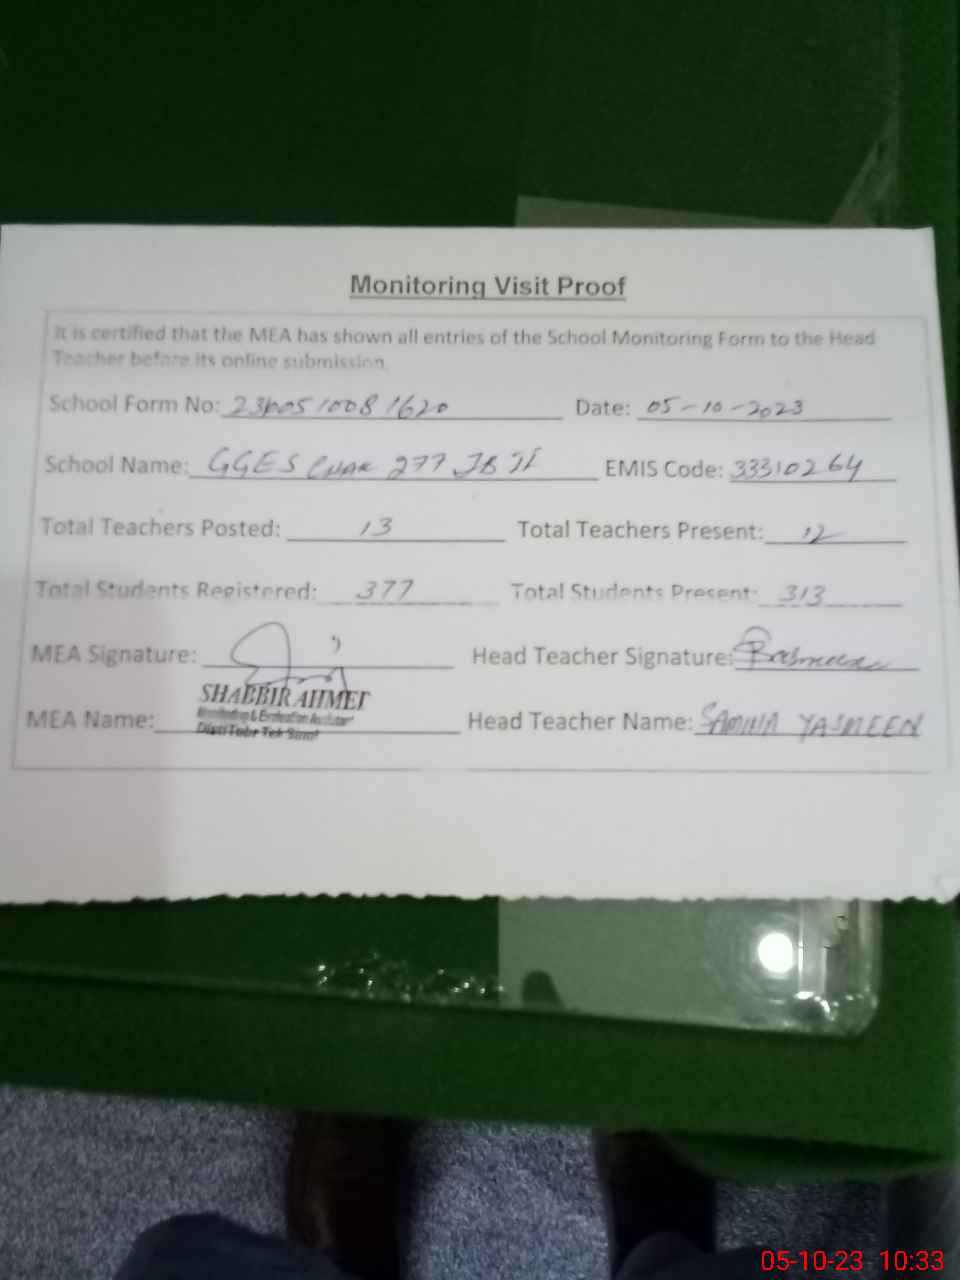 Monitoring Visit Proof
It is certified that the MEA has shown all entries of the School Monitoring Form to the Head
Teacher before its online submission.
School Form No: Date: 05-10-2023
School Name: GGES CHAK 277 JB II EMIS Code: 33310264
Total Teachers Posted: 13 Total Teachers Present: 12
Total Students Registered: 377 Total Students Present: 313
MEA Signature: Head Teacher Signature:
SHABBIR AHMET
Monitoring & Evaluation Assistant
MEA Name: Head Teacher Name: SAMINA YASMEEN
Distt Tek
05-10-23 10:33